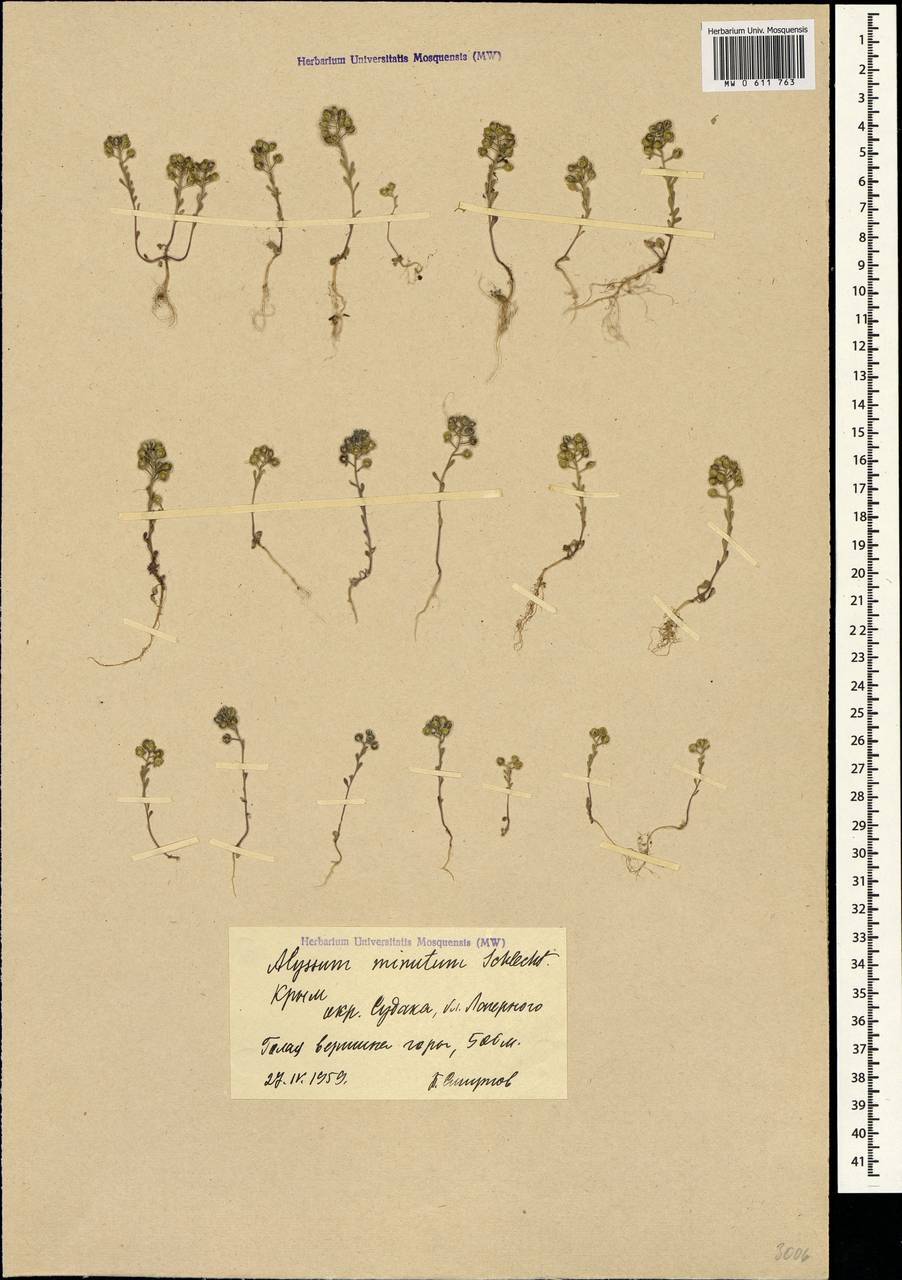 Herbarium Univ. Mosquensis
MW 0 611 763
Herbarium Universitatis Mosquensis (MW)
6
1
2
3
4
5
6
7
8
9
10
11
12
13
14
15
16
17
18
19
20
21
22
23
24
25
26
27
28
29
30
31
32
33
34
35
36
37
38
39
40
41
Herbarium Universitatis Mosquensis (MW)
Alyssum minutum Schlecht.
Крым
окр. Судака, бл. Лагерного
Голая вершина горы, 500 м.
27.IV.1959. П. Смирнов
3006